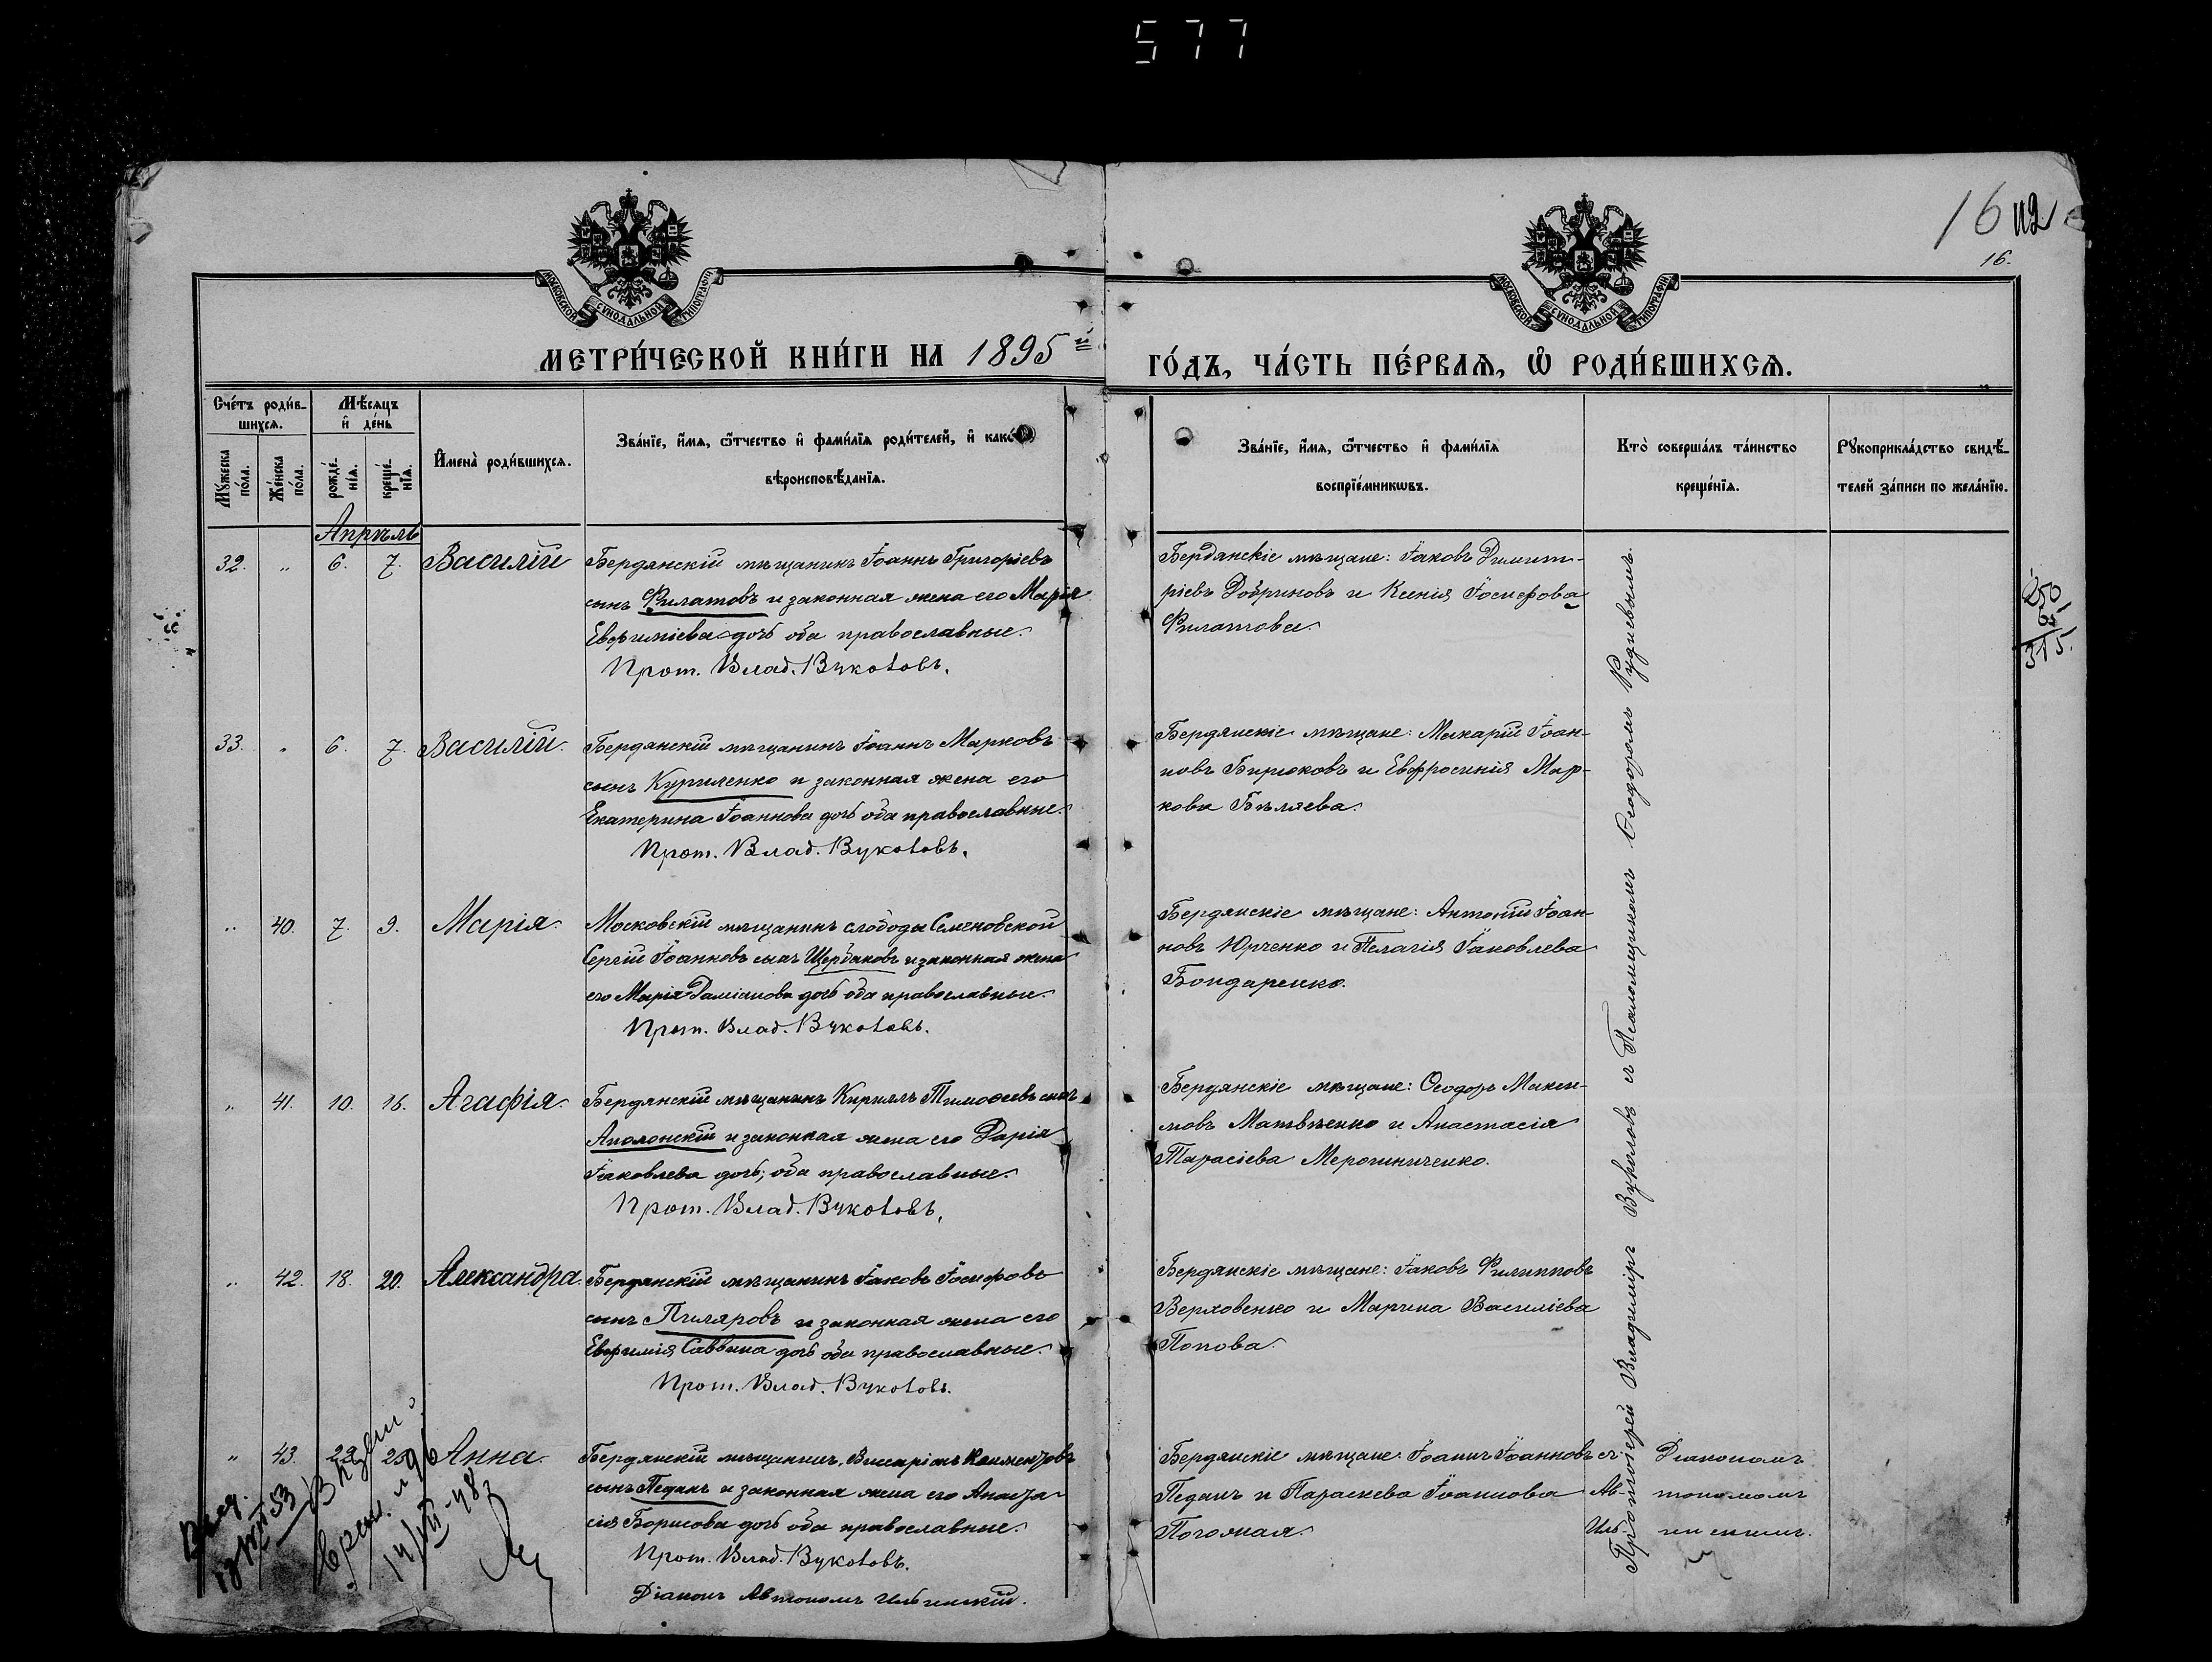 577
16 112
16.
МОСКОВСКОЙ СѴНОДАЛЬНОЙ ТИПОГРАФІИ
МОСКОВСКОЙ СѴНОДАЛЬНОЙ ТИПОГРАФІИ
МЕТРИ́ЧЕСКОЙ КНИ́ГИ НА 1895й
ГО́ДЪ, ЧА́СТЬ ПЕ́РВАѦ, Ѡ҆ РОДИ́ВШИХСѦ.
Сче́тъ роди́в-
шихсѧ.
Мѣ́сѧцъ
и҆ де́нь
Мꙋ́жеска по́ла.
Же́нска по́ла.
рожде́-нїѧ.
креще́-нїѧ.
И҆мена̀ роди́вшихсѧ.
Зва́нїе, и҆́мѧ, ѻ҆́тчество и҆ фами́лїѧ роди́телей, и҆ како́
вѣроисповѣ́данїѧ.
Зва́нїе, и҆́мѧ, ѻ҆́тчество и҆ фами́лїѧ
воспрїе́мникѡвъ.
Кто̀ соверша́лъ та́инство
креще́нїѧ.
Рꙋкоприкла́дство свидѣ́-
телей за́писи по жела́нїю.
Апрѣль
32. " 6. 7. Василій
Бердянскій мѣщанинъ Іоаннъ Григоріевъ
сынъ Филатовъ и законная жена его Марія
Евфиміева дочь оба православные.
Прот. Влад. Вукотовъ.
Бердянскіе мѣщане: Іаковъ Димит-
ріевъ Добриновъ и Ксенія Іосифова
Филатова.
250
315.
33. " 6. 7. Василій.
Бердянскій мѣщанинъ Іоаннъ Марковъ
сынъ Куриленко и законная жена его
Екатерина Іоаннова дочь оба православные.
Прот. Влад. Вукотовъ.
Бердянскіе мѣщане: Макарій Іоан-
новъ Бирюковъ и Евфросинія Мар-
кова Бѣляева.
" 40. 7. 9. Марія.
Московскій мѣщанинъ слободы Семеновской
Сергій Іоанновъ сынъ Щербаковъ и законная жена
его Марія Даміанова дочь оба православные.
Прот. Влад. Вукотовъ.
Бердянскіе мѣщане: Антоній Іоан-
новъ Юрченко и Пелагія Іаковлева
Бондаренко.
" 41. 10. 16. Агафія.
Бердянскій мѣщанинъ Кириллъ Тимоѳеевъ сынъ
Аполонскій и законная жена его Дарія
Іаковлева дочь; оба православные.
Прот. Влад. Вукотовъ.
Бердянскіе мѣщане: Ѳеодоръ Макси-
мовъ Матвѣенко и Анастасія
Тарасіева Мерочниченко.
" 42. 18. 20. Александра.
Бердянскій мѣщанинъ Іаковъ Іосифовъ
сынъ Пиляровъ и законная жена его
Евфимія Саввина дочь оба православные.
Прот. Влад. Вукотовъ.
Бердянскіе мѣщане: Іаковъ Филипповъ
Верховенко и Марина Василіева
Попова.
" 43. 22. 25. Анна.
Бердянскій мѣщанинъ Виссаріонъ Климентовъ
сынъ Педанъ и законная жена его Анаста-
сія Борисова дочь оба православные.
Прот. Влад. Вукотовъ.
Діаконъ Автономъ Ильинскій.
Бердянскіе мѣщане: Іоаннъ Іоанновъ
Педанъ и Параскева Іоаннова
Погожая.
Протоіерей Владиміръ Вуколовъ съ Псаломщикомъ Ѳеодоромъ Рудневымъ.
съ Діакономъ
Ав- тономомъ
Иль- инскимъ.
14/VII-48